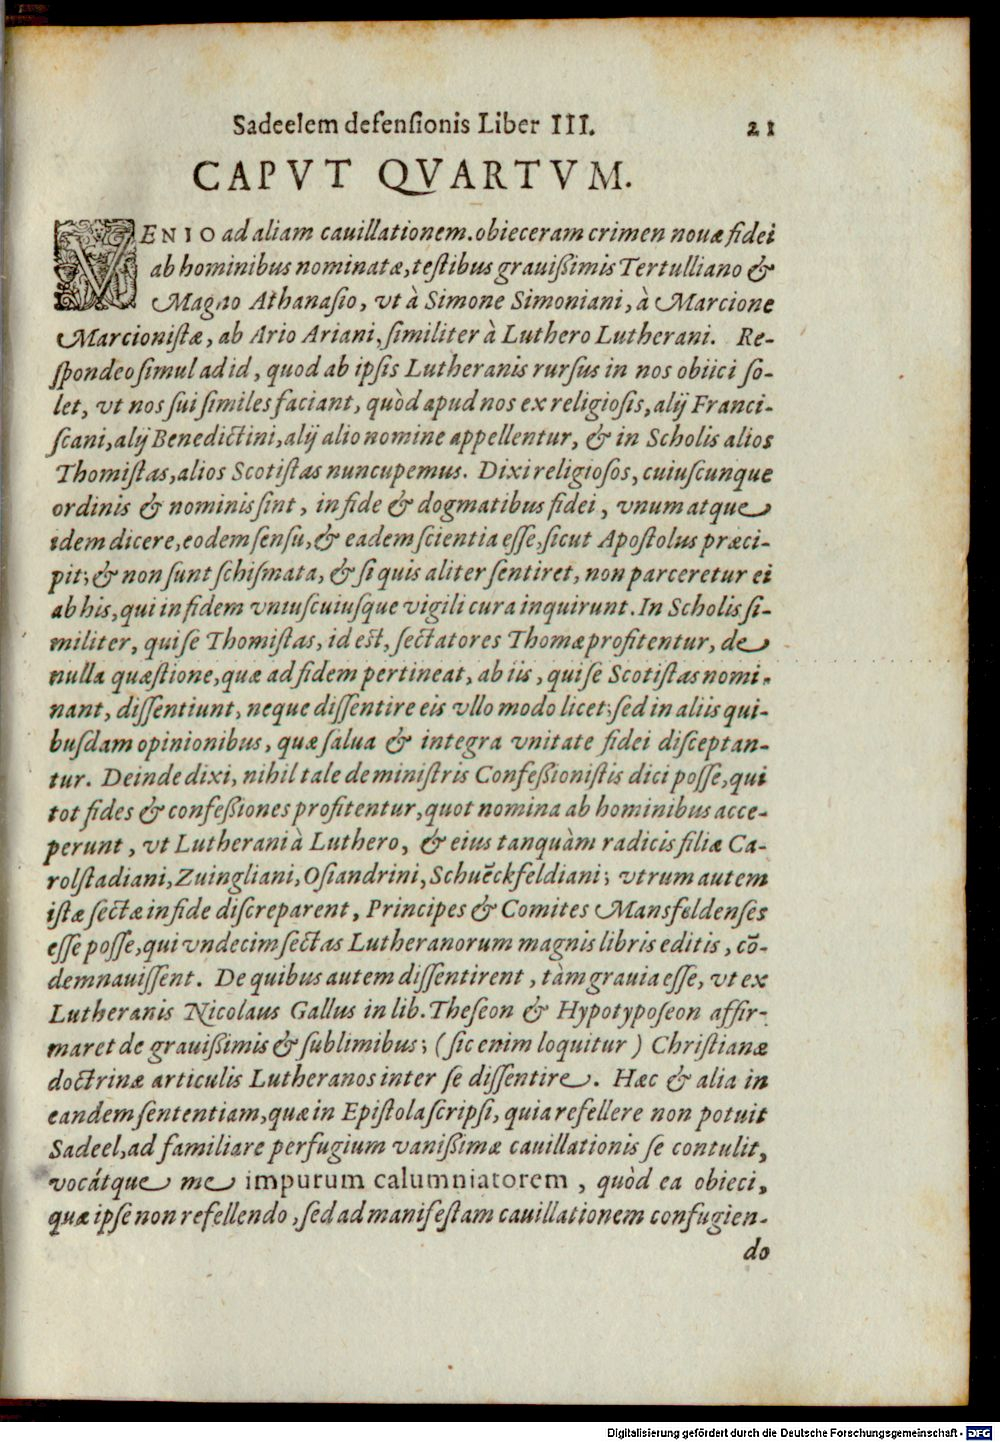 Sadeelem defensionis Liber III. 21
CAPVT QVARTVM.
VENIO ad aliam cauillationem. obieceram crimen nouæ fidei
ab hominibus nominatæ, testibus grauißimis Tertulliano &
Magno Athanasio, vt à Simone Simoniani, à Marcione
Marcionistæ, ab Ario Ariani, similiter à Luthero Lutherani. Re-
spondeo simul ad id, quod ab ipsis Lutheranis rursus in nos obiici so-
let, vt nos sui similes faciant, quòd apud nos ex religiosis, alij Franci-
scani, alij Benedictini, alij alio nomine appellentur, & in Scholis alios
Thomistas, alios Scotistas nuncupemus. Dixi religiosos, cuiuscunque
ordinis & nominis sint, in fide & dogmatibus fidei, vnum atque
idem dicere, eodem sensu, & eadem scientia esse, sicut Apostolus præci-
pit; & non sunt schismata, & si quis aliter sentiret, non parceretur ei
ab his, qui in fidem vniuscuiusque vigili cura inquirunt. In Scholis si-
militer, qui se Thomistas, id est, sectatores Thomæ profitentur, de
nulla quæstione, quæ ad fidem pertineat, ab iis, qui se Scotistas nomi-
nant, dissentiunt, neque dissentire eis vllo modo licet; sed in aliis qui-
busdam opinionibus, quæ salua & integra vnitate fidei disceptan-
tur. Deinde dixi, nihil tale de ministris Confeßionistis dici posse, qui
tot fides & confeßiones profitentur, quot nomina ab hominibus acce-
perunt, vt Lutherani à Luthero, & eius tanquàm radicis filiæ Ca-
rolstadiani, Zuingliani, Osiandrini, Schuēckfeldiani; vtrum autem
istæ sectæ in fide discreparent, Principes & Comites Mansfeldenses
esse posse, qui vndecim sectas Lutheranorum magnis libris editis, cō-
demnauissent. De quibus autem dissentirent, tàm grauia esse, vt ex
Lutheranis Nicolaus Gallus in lib. Theseon & Hypotyposeon affir-
maret de grauißimis & sublimibus; (sic enim loquitur) Christianæ
doctrinæ articulis Lutheranos inter se dissentire. Hæc & alia in
eandem sententiam, quæ in Epistola scripsi, quia refellere non potuit
Sadeel, ad familiare perfugium vanißimæ cauillationis se contulit,
vocátque me impurum calumniatorem, quòd ea obieci,
quæ ipse non refellendo, sed ad manifestam cauillationem confugien-
do
Digitalisierung gefördert durch die Deutsche Forschungsgemeinschaft - DFG